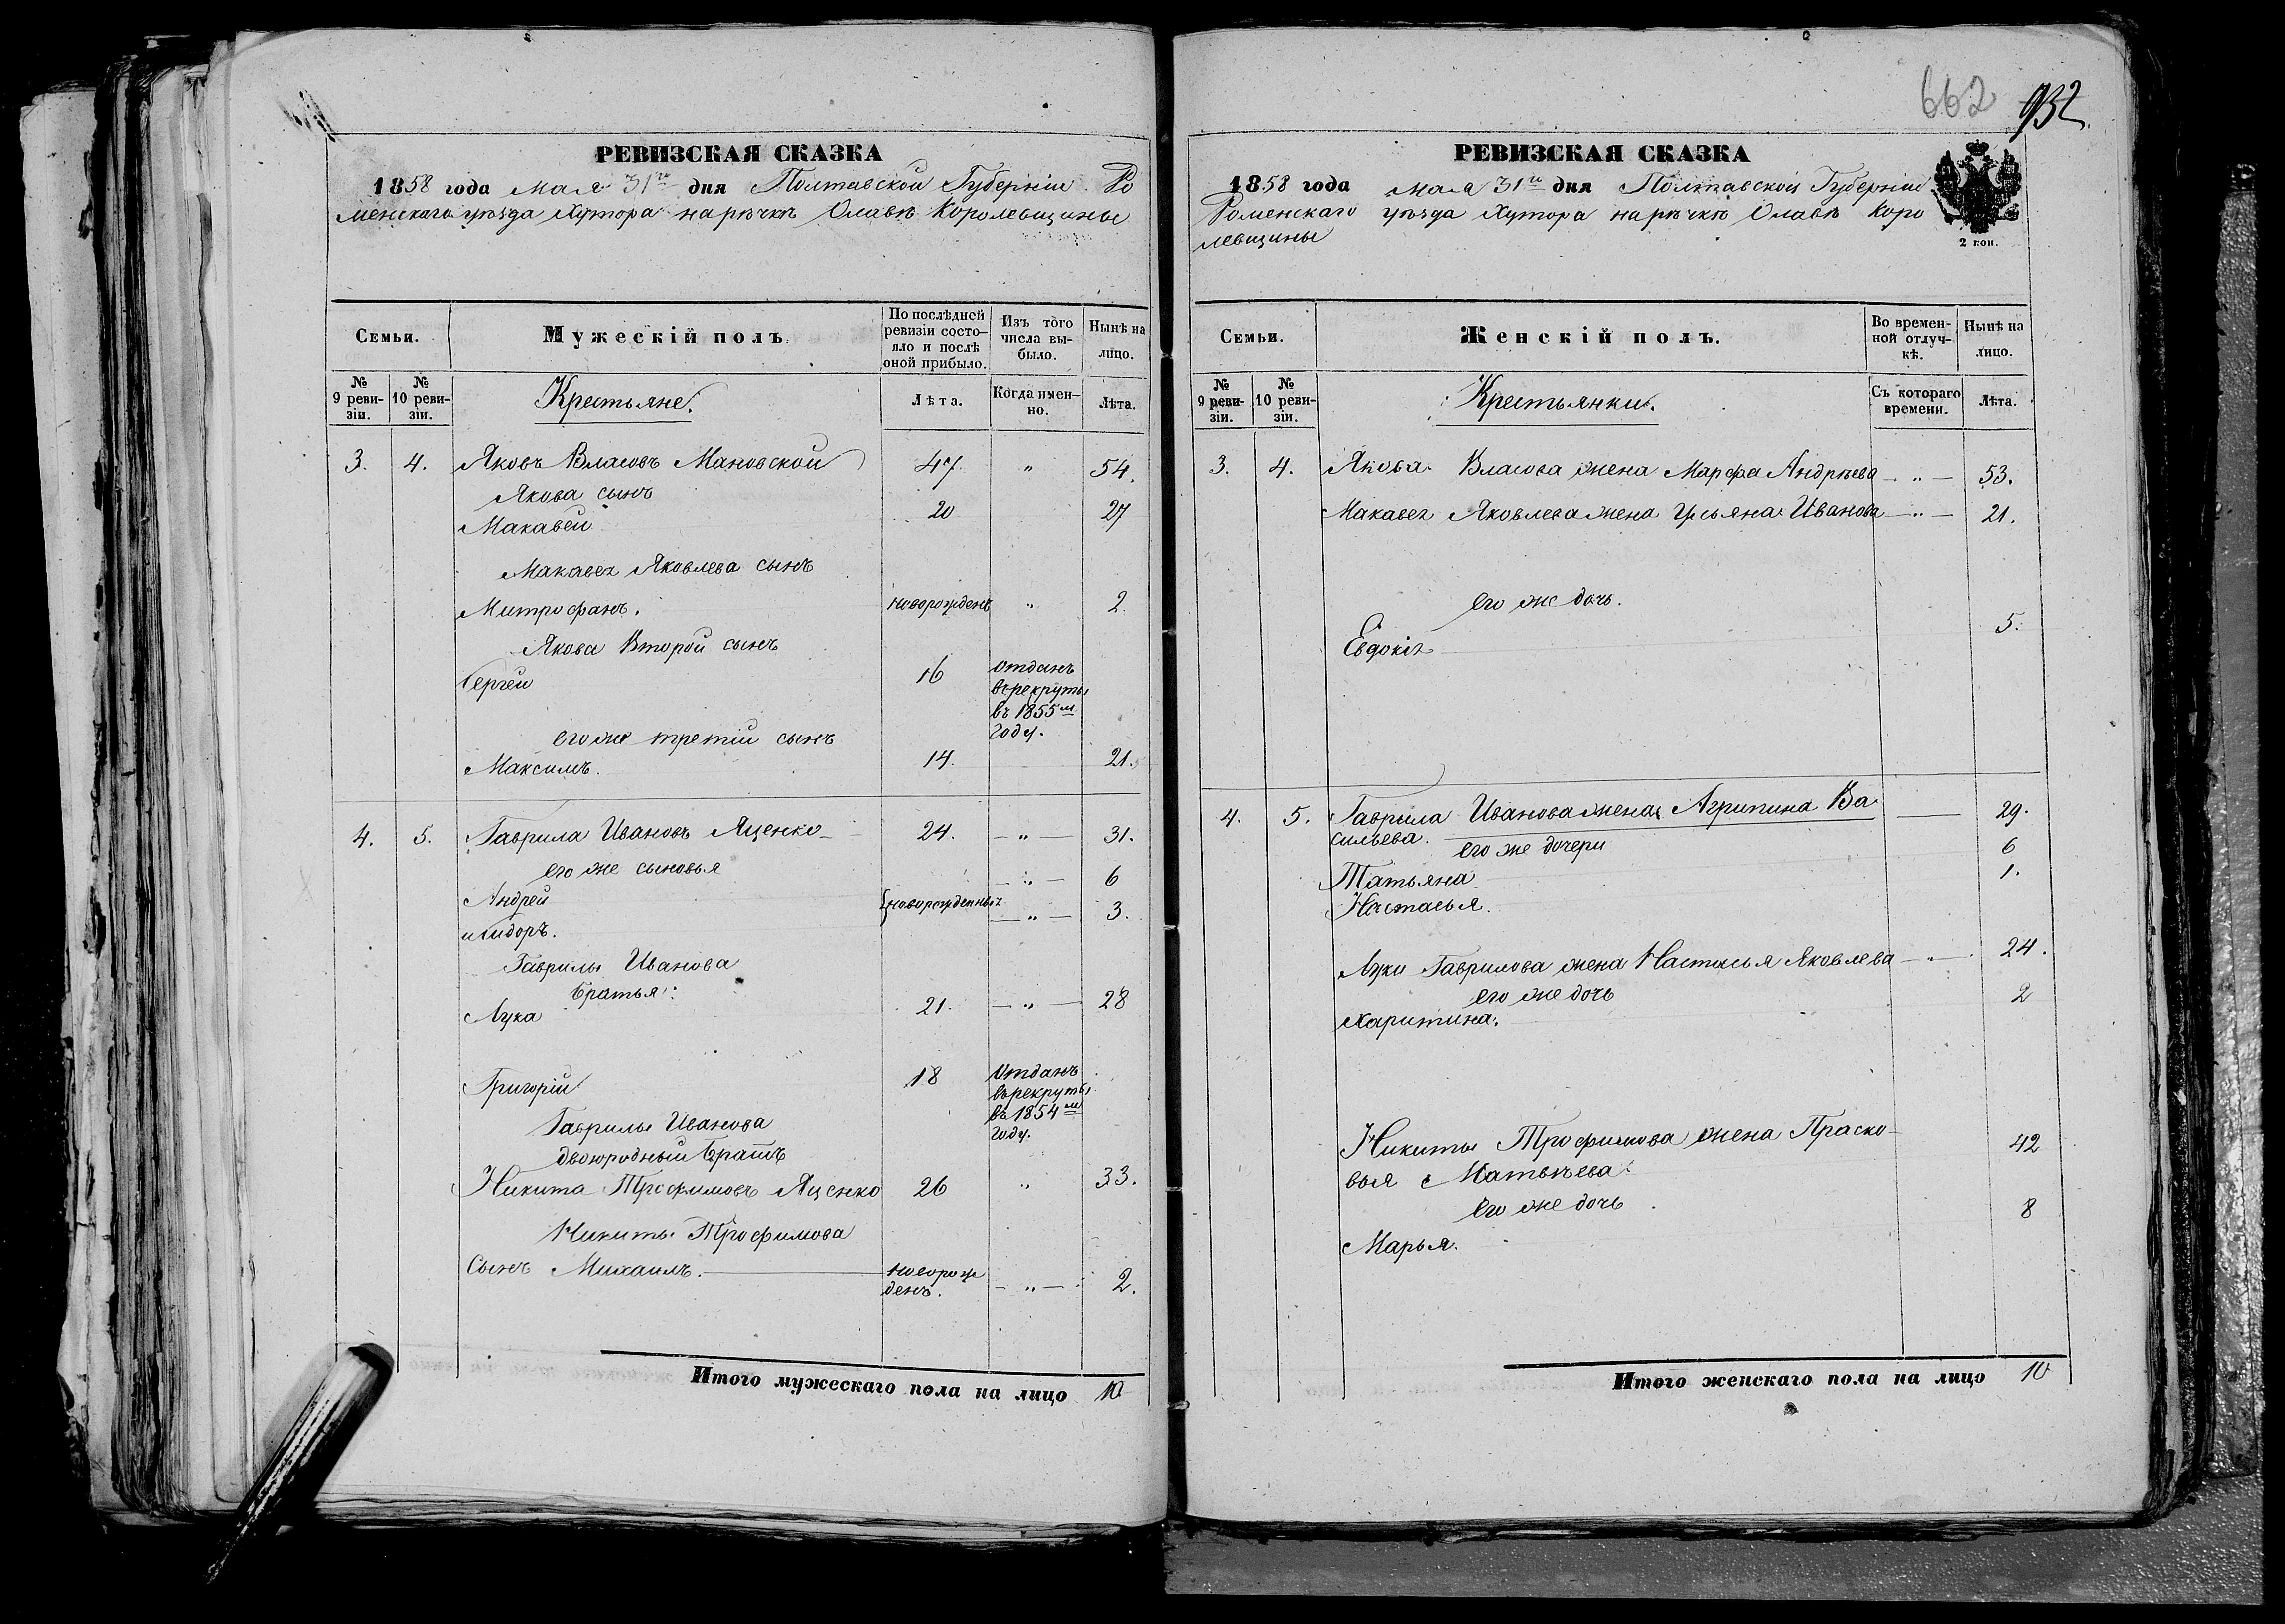 РЕВИЗСКАЯ СКАЗКА
1858 года мая 31го дня Полтавской Губернiи Ро
менскаго уѣзда Хутора на рѣчкѣ Олавѣ Королевщины
Семьи.
Мужескiй полъ.
По послѣдней ревизiи состо-
яло и послѣ оной прибыло.
Изъ того числа вы-
было.
Нынѣ на лицо.
№ 9 реви-
зiи.
№ 10 реви-
зiи.
Крестьяне.
Лѣта.
Когда имен-
но.
Лѣта.
3. 4. Яковъ Власовъ Мановской 47 " 54.
Якова сынъ
Макавей 20 27
Макавея Яковлева сынъ
Митрофанъ. новорожденъ " 2.
Якова Второй сынъ
Сергей 16 отданъ
въ рекруты
въ 1855м
году.
его же третiй сынъ
Максимъ. 14. 21.
4. 5. Гаврила Ивановъ Яценко 24. — " — 31.
его же сыновья
Андрей — " — 6
{новорожденныя
и Сидоръ. — " — 3.
Гаврилы Иванова
братья:
Лука 21. — " — 28
Григорiй 18 Отданъ
въ рекруты
въ 1854м
году.
Гаврилы Иванова
двоюродный братъ
Никита Трофимовъ Яценко 26 " 33.
Никиты Трофимова
Сынъ Михаилъ. новорож
денъ. — " — 2.
Итого мужескаго пола на лицо 10
662 932
РЕВИЗСКАЯ СКАЗКА
1858 года мая 31го дня Полтавской Губернiи
Роменскаго уѣзда Хутора на рѣчкѣ Олавѣ Коро
левщины
2 коп.
Семьи.
Женскiй полъ.
Во времен-
ной отлуч-
кѣ.
Нынѣ на лицо.
№ 9 реви-
зiи.
№ 10 реви-
зiи.
Крестьянки.
Съ котораго
времени.
Лѣта.
3. 4. Якова Власова жена Марфа Андрѣева — " — 53.
Макавея Яковлева жена Ульяна Иванова — " — 21.
его же дочь.
Евдокiя 5.
4. 5. Гаврила Иванова жена Агрипина Ва 29.
сильева.
его же дочери 6
Татьяна 1.
Настасья.
Луки Гаврилова жена Настасья Яковлева — " — 24.
его же дочь 2
Харитина.
Никиты Трофимова жена Праско- 42
вья Матвѣева
его же дочь 8
Марья.
Итого женскаго пола на лицо 10